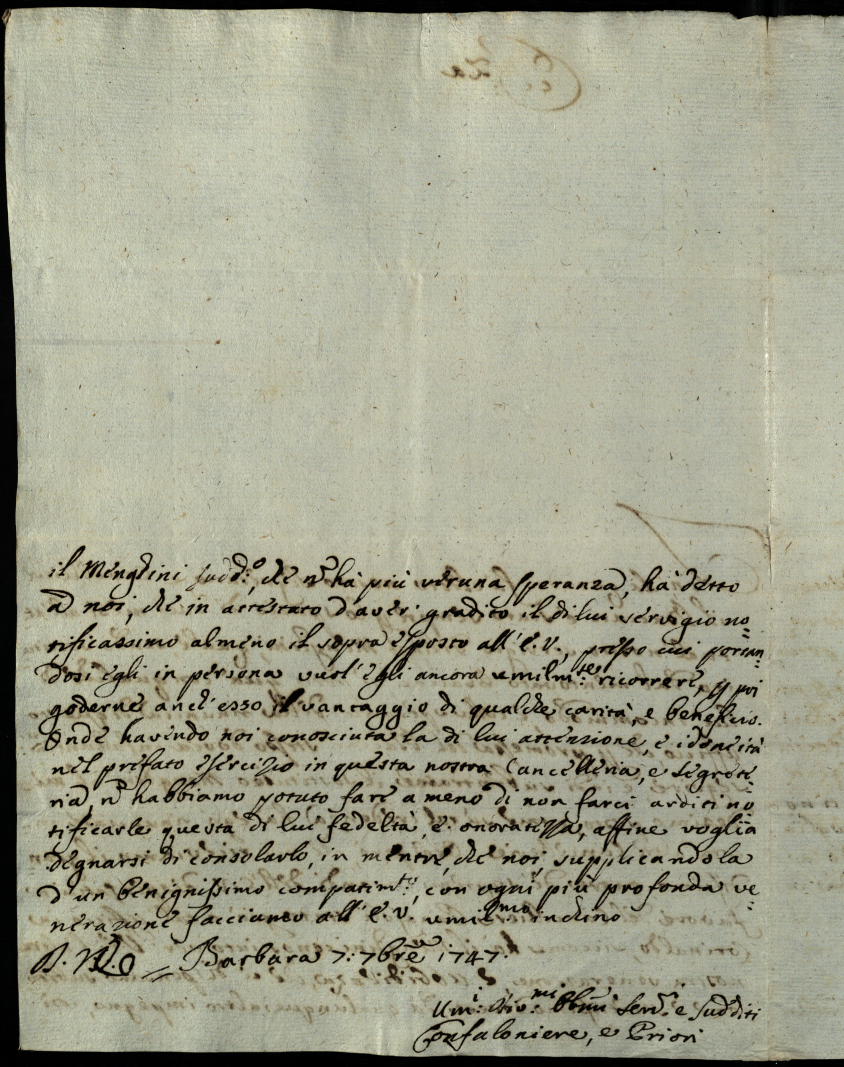 il Menghini sudd.º, che nō hà più veruna speranza, hà detto
à noi, che in attestato d'aver gradito il di lui servigio no=
tificassimo almeno il sopra esposto all' E. V., presso cui portan=
dosi egli in persona vuol' egli ancora umilm.te ricorrere, e poi
goderne anch' esso il vantaggio di qualche carità, e beneficio.
Onde havendo noi conosciuta la di lui attenzione, e idoneità
nel prefato esercizio in questa nostra Cancelleria, e Segrete=
ria, nō habbiamo potuto fare a meno di non farci arditi no=
tificarle questa di lui fedeltà, e onoratezza, affine voglia
degnarsi di consolarlo, in mentre, che noi, supplicandola
d'un benignissimo compatim.to, con ogni più profonda ve=
nerazione facciamo all' E. V. umil.mo inchino
Barbara 7: 7bre 1747.
Umi: Div:mi Obbmi Servi e Sudditi
Confaloniere, e Priori